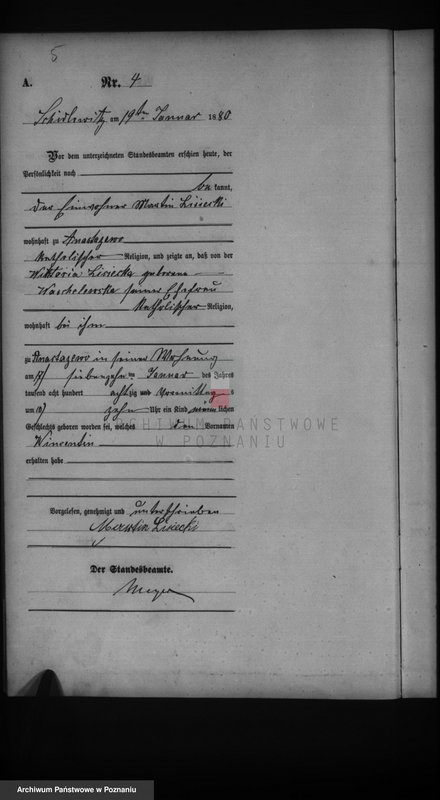 5
A.
Nr. 4
Schidlowitz am 19ten Januar 1880
Vor dem unterzeichneten Standesbeamten erschien heute, der
Persönlichkeit nach
bekannt,
der Einwohner Martin Lisiecki
wohnhaft zu Anastazewo
katholischer Religion, und zeigte an, daß von der
Wiktoria Lisiecka geborene
seiner Ehefrau
katholischer Religion,
wohnhaft bei ihm
zu Anastazewo in seiner Wohnung
am 17 siebenzehn ten Januar des Jahres
tausend acht hundert achtzig und Vormittags
um 10 zehn Uhr ein Kind männlichen
Geschlechts geboren worden sei, welches den Vornamen
Wincentin
erhalten habe
ARCHIWUM PAŃSTWOWE
W POZNANIU
Vorgelesen, genehmigt und unterschrieben
Martin Lisiecki
Der Standesbeamte.
Meyer
Archiwum Państwowe w Poznaniu